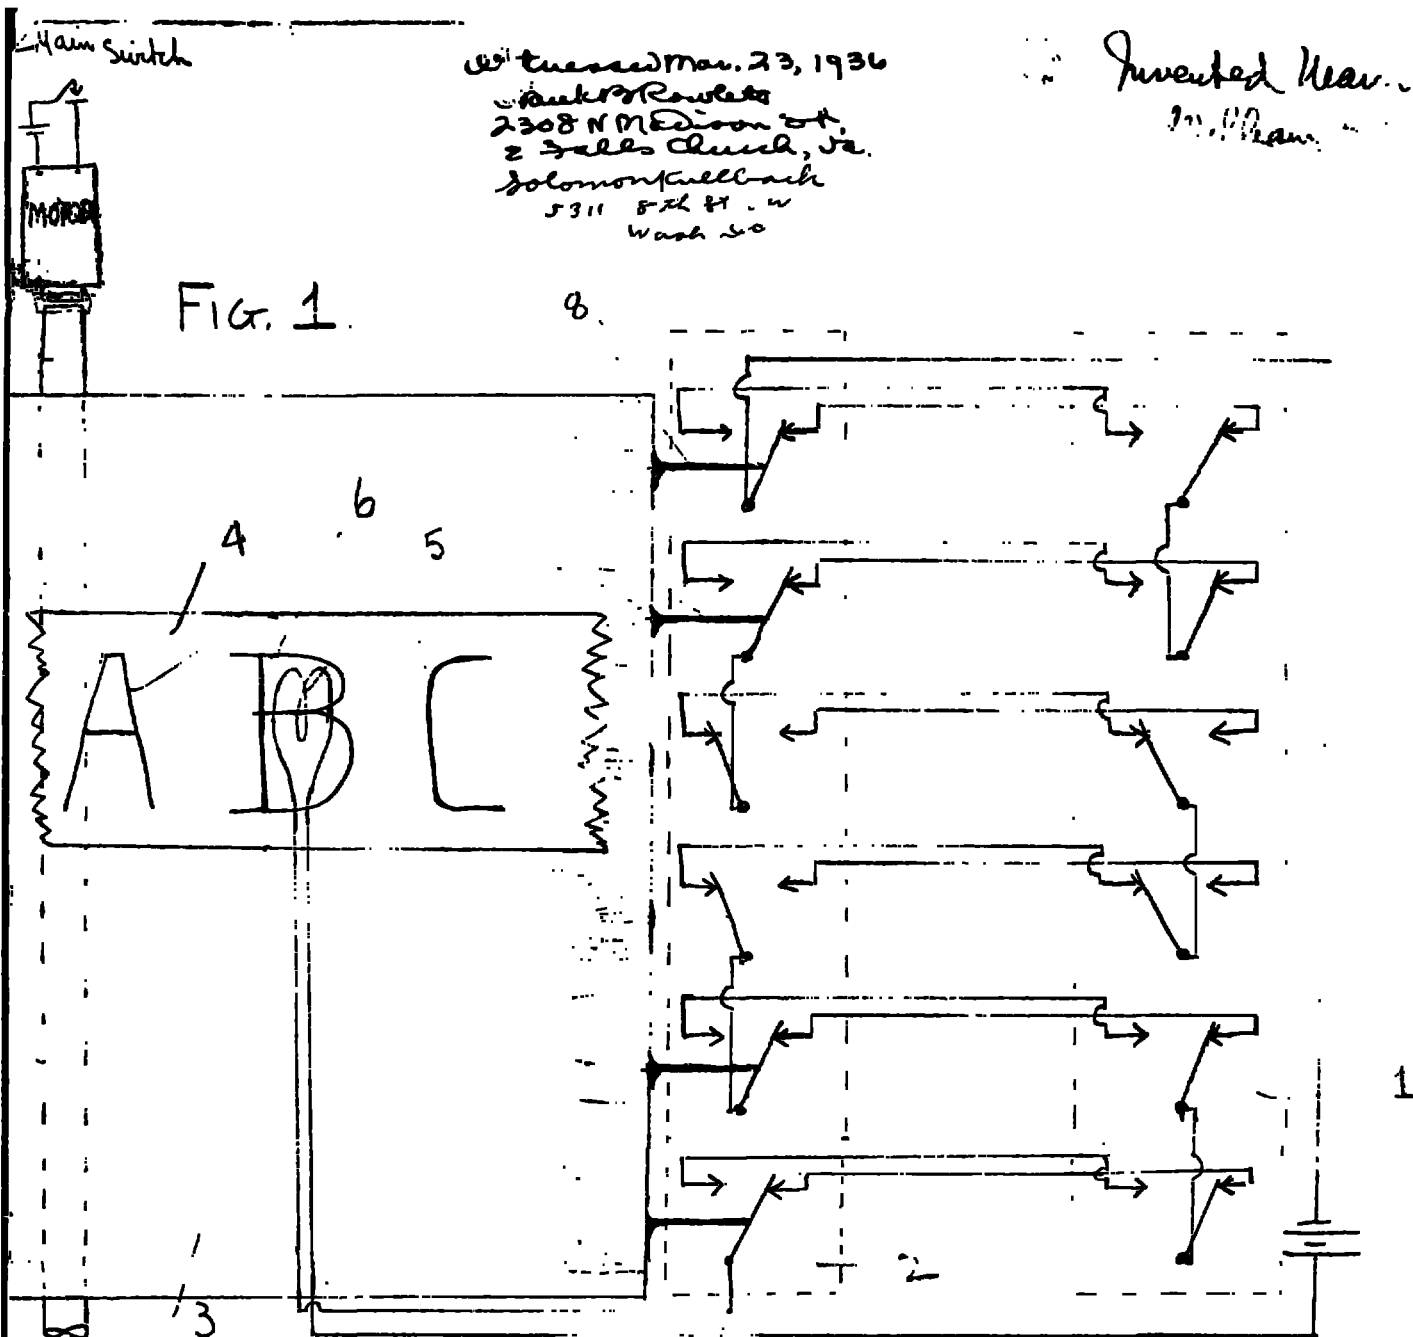 Main Switch
Witnessed Mar. 23, 1936
Frank B Rowlett
2308 N Madison St.
Falls Church, Va.
Solomon Kullback
5311 8th St. W
Wash
Invented
MOTOR
FIG. 1
8
6
4
5
A B C
1
2
3